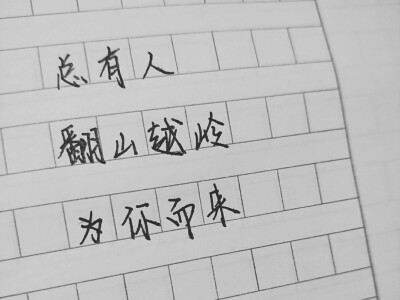 总有人
翻山越岭
为你而来